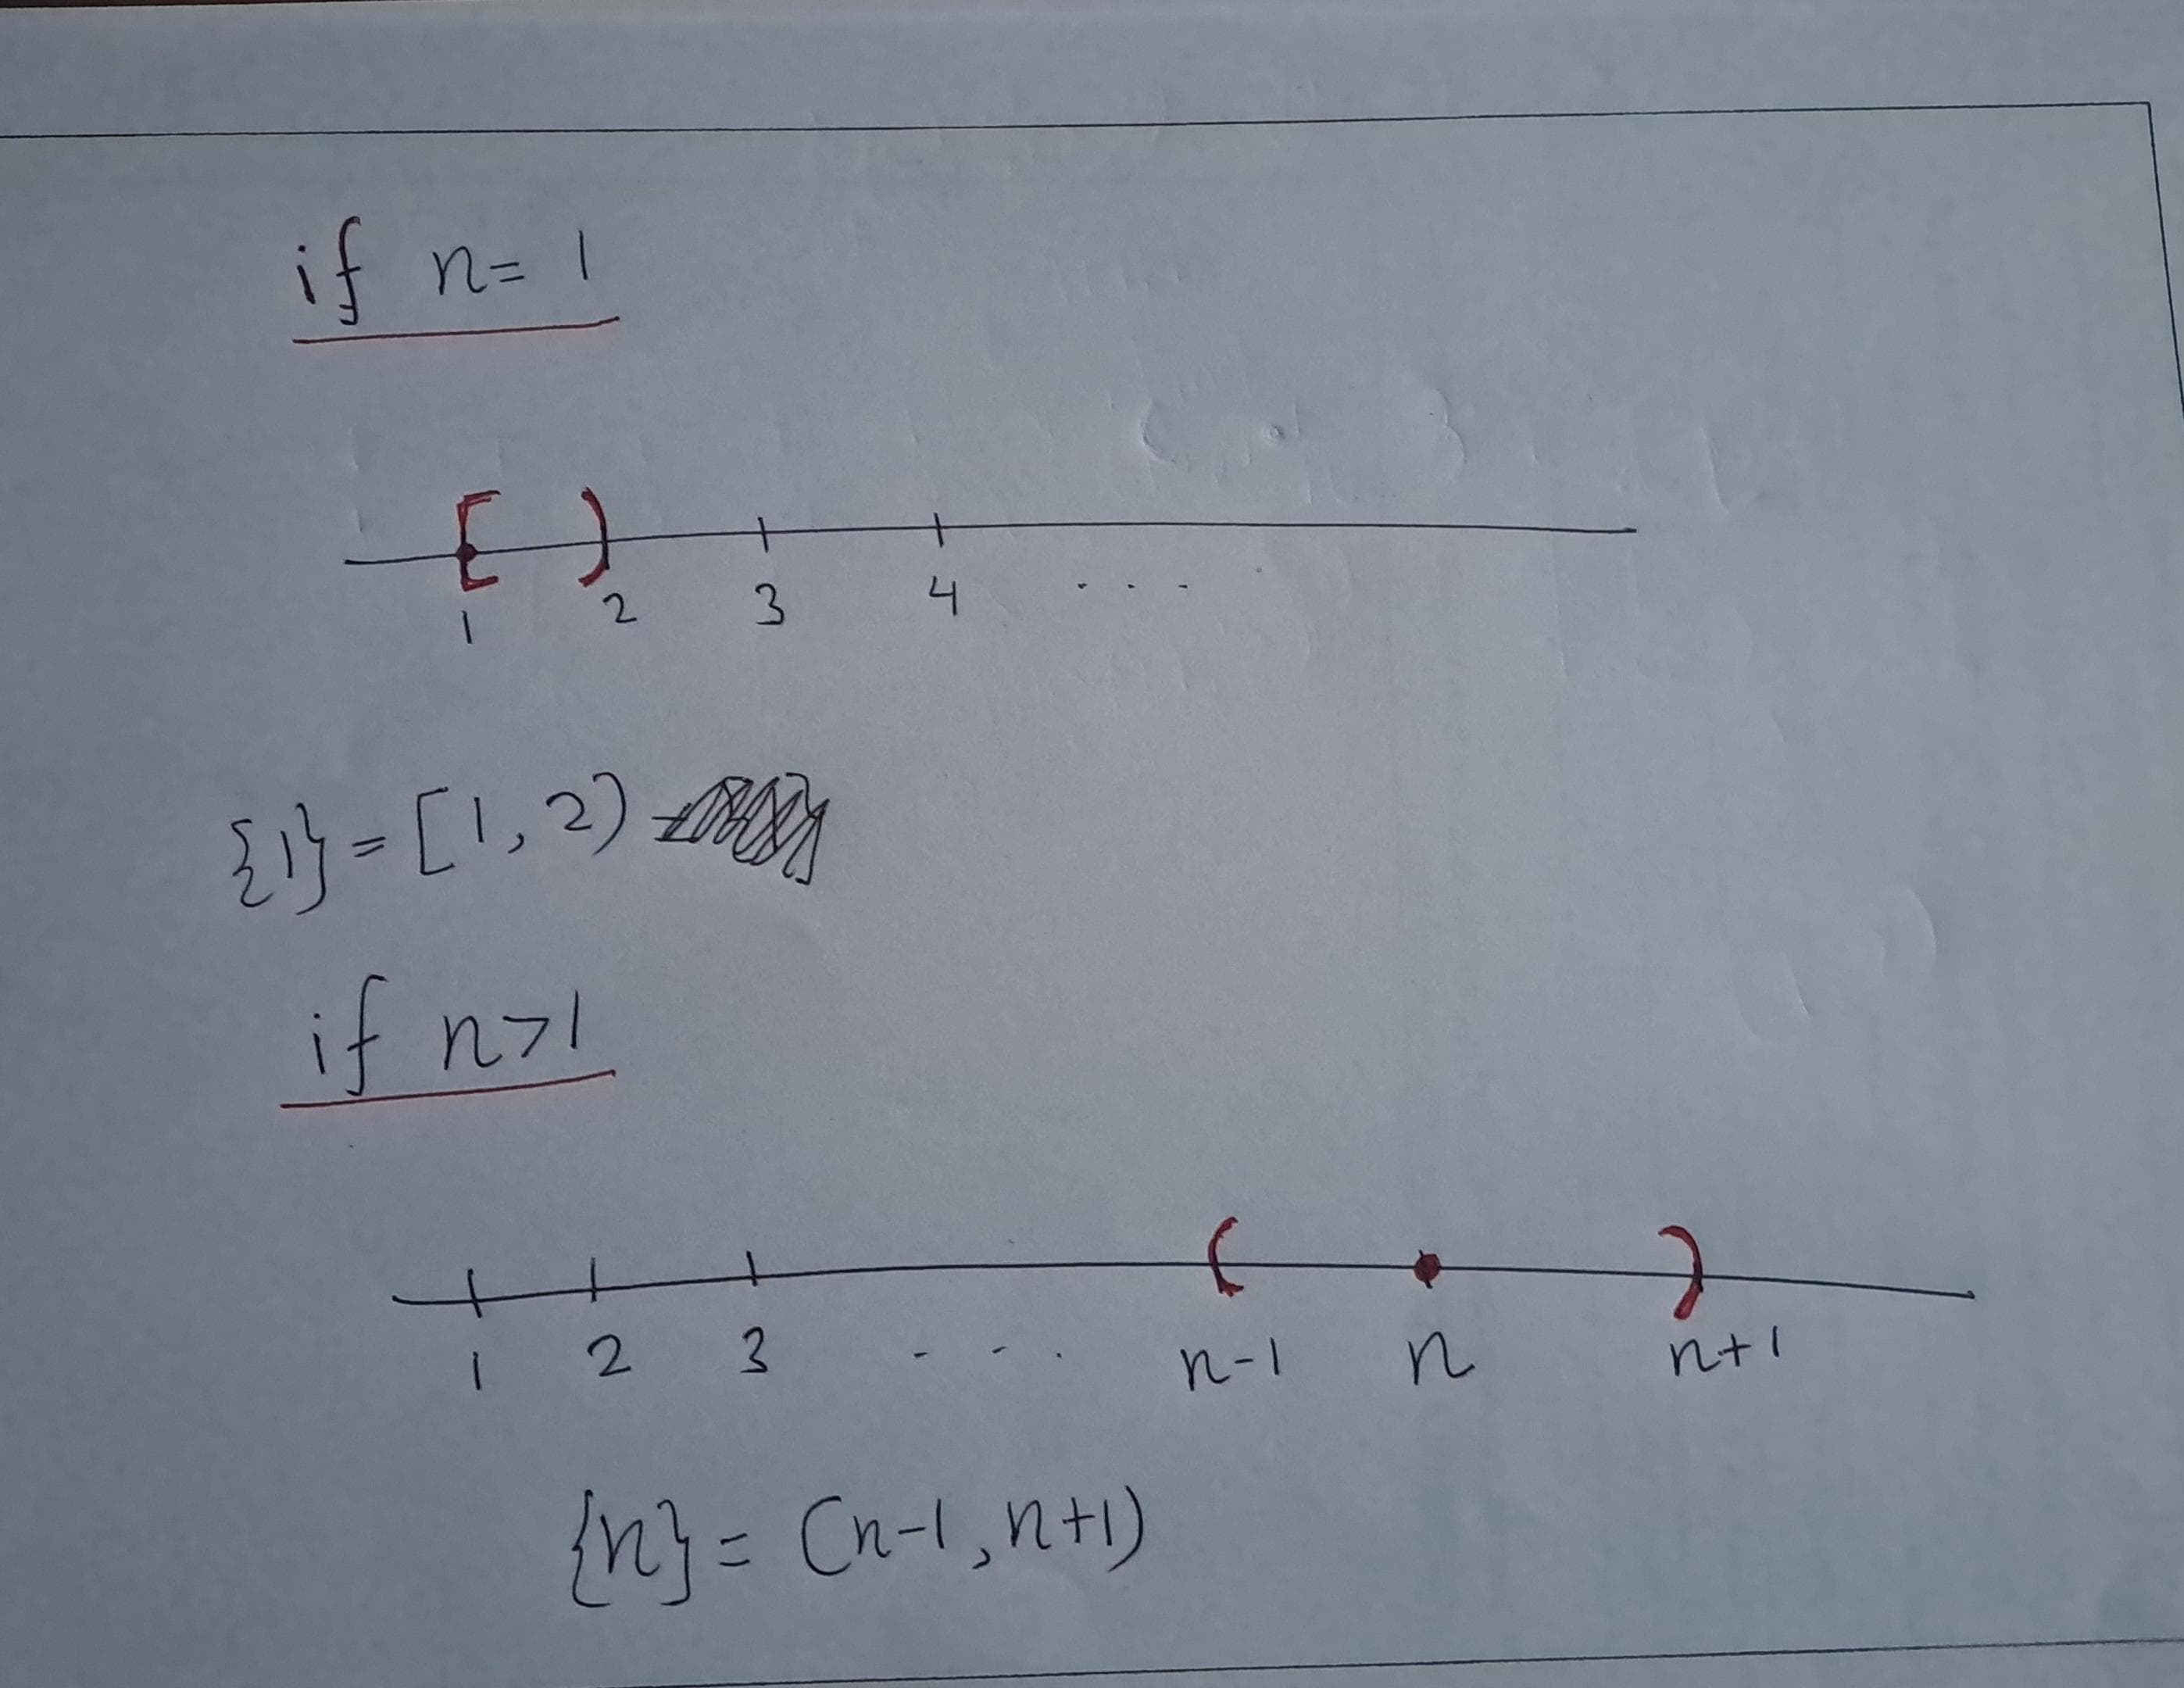 if n= 1
1 2 3 4 . . .
{1}=[1,2)
if n>1
1 2 3 . . . n-1 n n+1
{n}= (n-1,n+1)